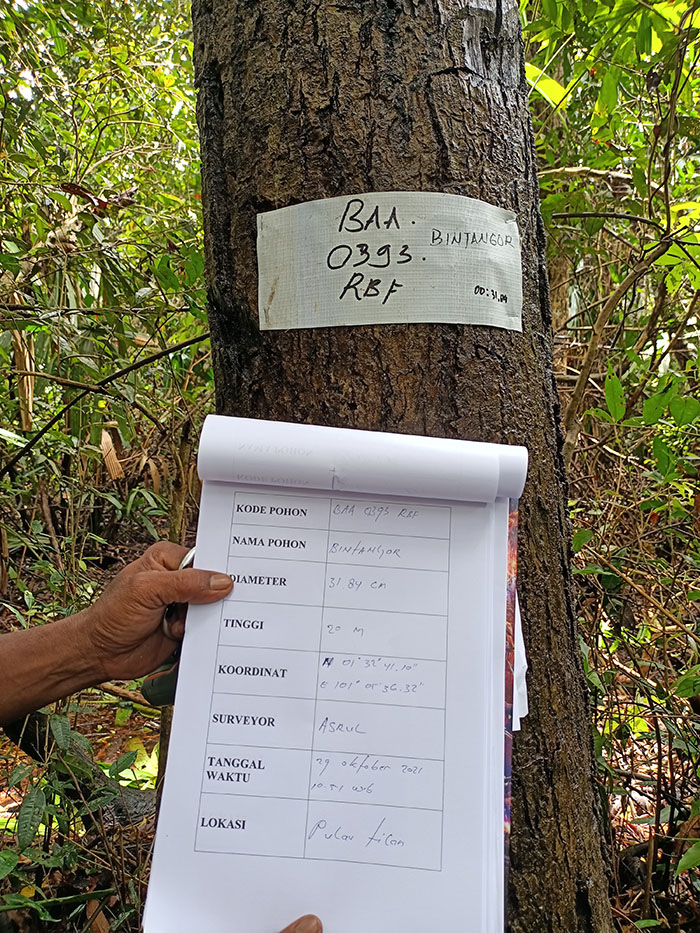 BAA.
0393. BINTANGOR
RBF
KODE POHON BAA 0393 RBF
NAMA POHON BINTANGOR
DIAMETER 31.84 cm
TINGGI 20 M
KOORDINAT N 01° 32' 41.10"
E 101° 36.32"
SURVEYOR ASRUL
TANGGAL 29 oktober 2021
WAKTU 10.51 wib
LOKASI Pulau